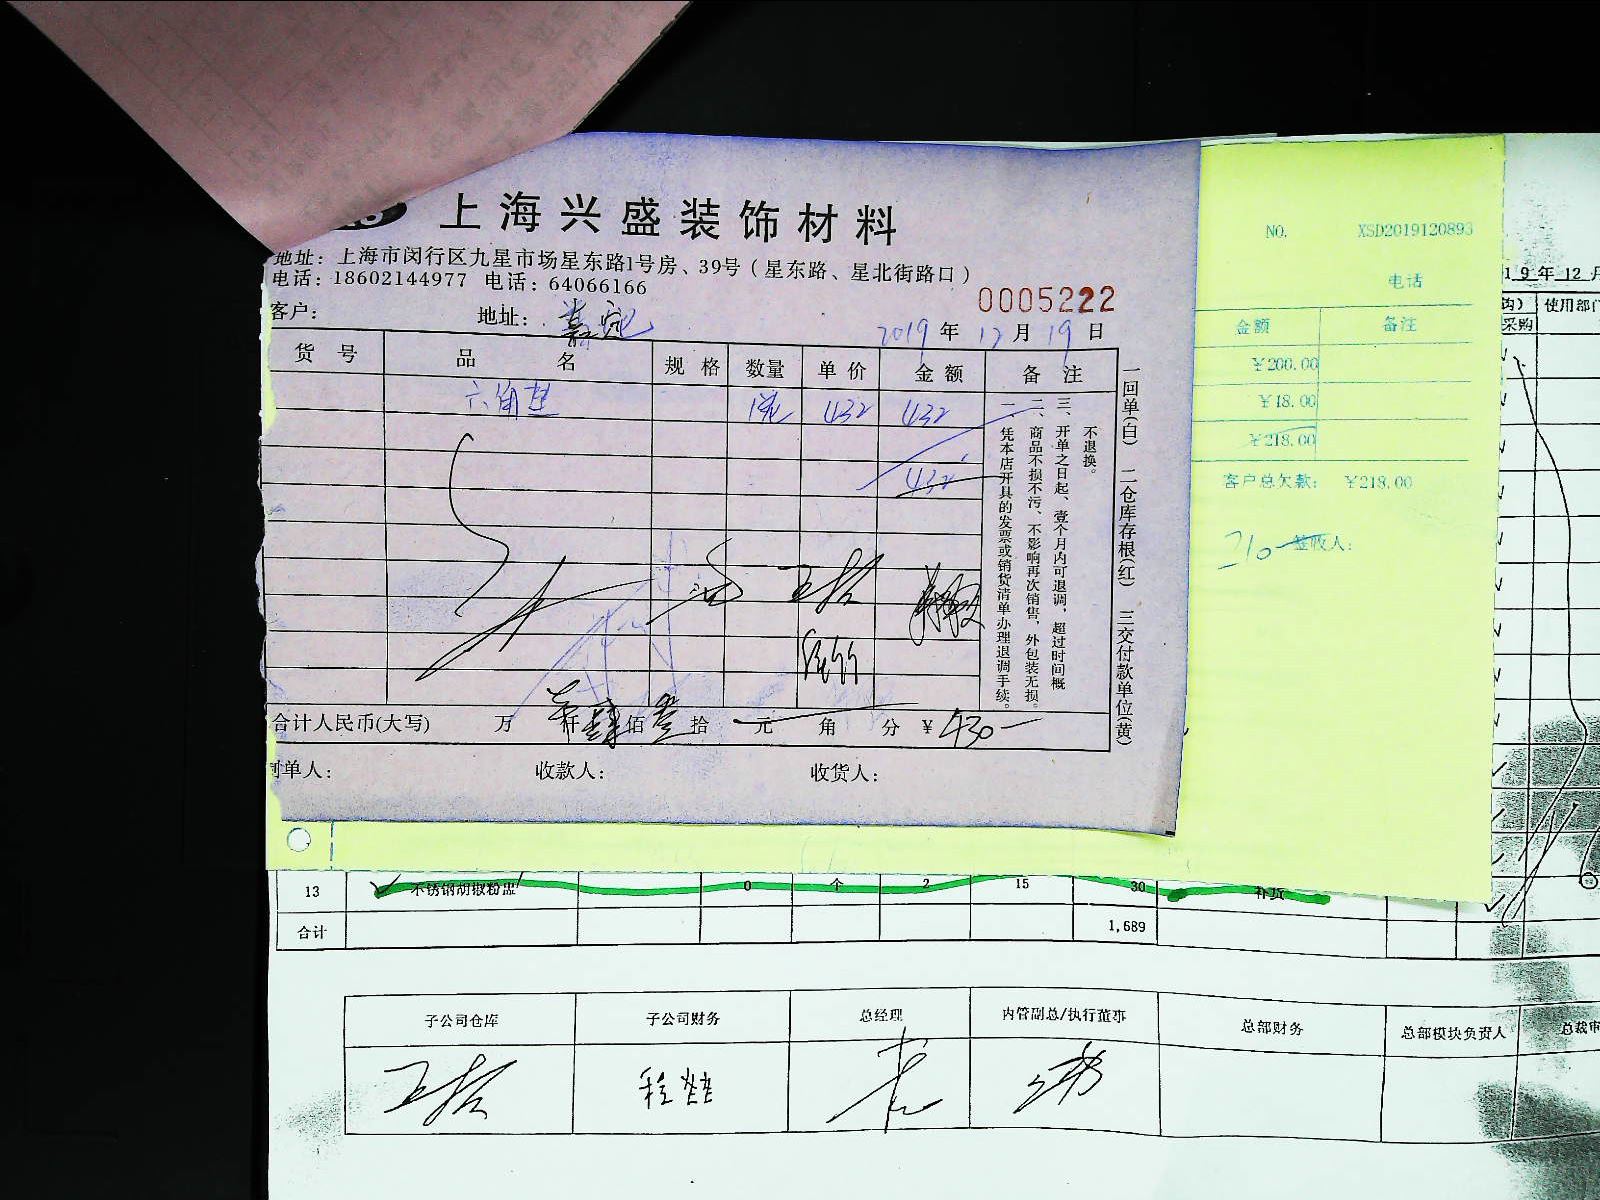 上海兴盛装饰材料
地址：上海市闵行区九星市场星东路1号房、39号（星东路、星北街路口）
电话：18602144977 电话：64066166
0005222
客户： 地址：嘉宛
2019 年 12 月 19 日
货号 品名 规格 数量 单价 金额 备注
六角 432 432
432
一、凭本店开具的发票或销货清单办理退调手续。
二、商品不损不污、不影响再次销售，外包装无损。
三、开单之日起，壹个月内可退调，超过时间概
不退换。
一回单(白) 二仓库存根(红) 三交付款单位(黄)
合计人民币(大写) 万 仟肆佰叁拾 元 角 分 ￥430
制单人： 收款人： 收货人：
NO. XSD2019120893
电话
金额 备注
￥200.00
￥18.00
￥218.00
客户总欠款： ￥218.00
210 签收人：
19年12月
购） 使用部门
采购
13 不锈钢胡椒粉盅 0 个 2 15 30 补货
合计 1,689
子公司仓库 子公司财务 总经理 内管副总/执行董事 总部财务 总部模块负责人 总裁审